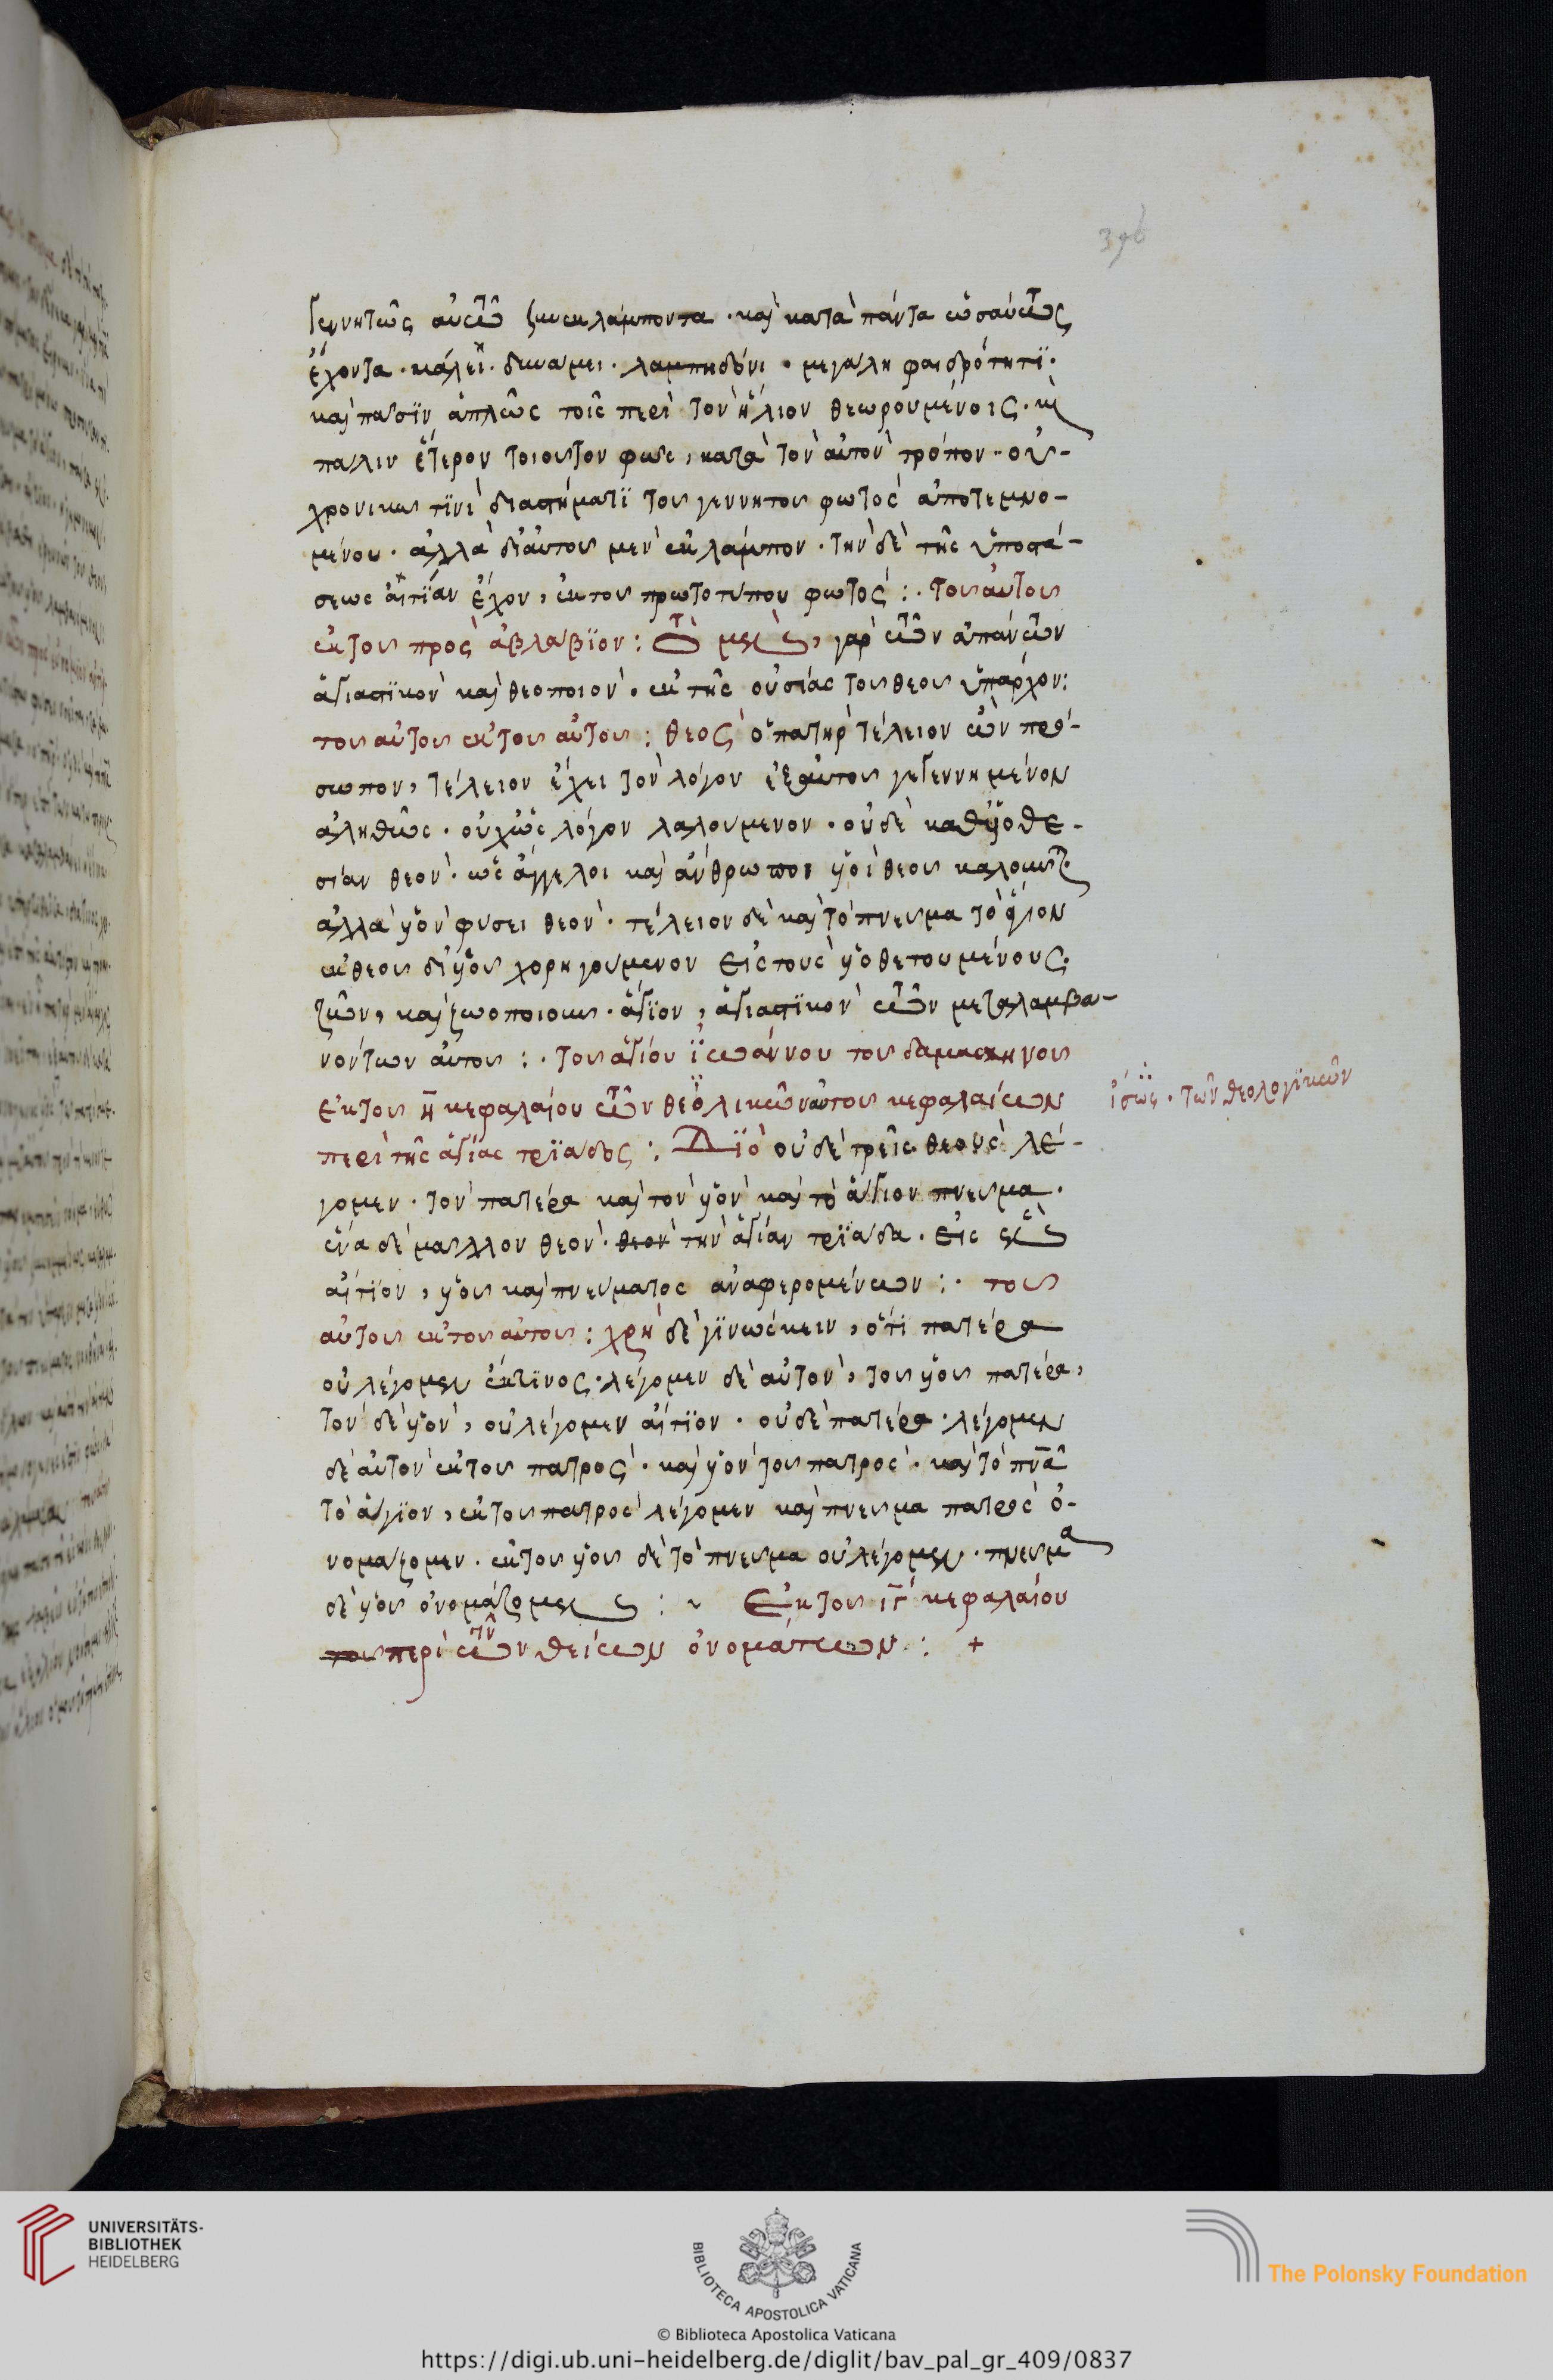 396
γεννητῶς αὐτῶ συνεκλάμποντα · καὶ κατα πάντα ὡσαύτως
ἔχοντα · κάλει · δυνάμει · λαμπηδόνι · μεγάλη φαιδρότητϊ ·
καὶ πάσϊν ἁπλῶς τοῖς περὶ τὸν ἥλιον θεωρουμένοις · καὶ
πάλιν ἕτερον τοιοῦτον φῶς, κατὰ τὸν αὐτὸν τρόπον · οὐ-
χρονικῶ τϊνὶ διαστήματϊ τοῦ γεννητοῦ φωτὸς ἀποτεμνο-
μένου · ἀλλὰ δι αὐτοῦ μὲν ἐκλάμπον · τὴν δὲ τῆς ὑποστά-
σεως αἰτϊαν ἔχον, ἐκ τοῦ πρωτοτύπου φωτός :· Τοῦ αὐτοῦ
ἐκ τοῦ πρὸς ἀβλάβϊον : Τὸ μὲν, γὰρ τῶν ἁπάντων
ἁγιαστϊκὸν καὶ θεοποιὸν · ἐκ τῆς οὐσίας τοῦ θεοῦ ὑπάρχον :
τοῦ αὐτοῦ ἐκ τοῦ αὐτοῦ : θεὸς ὁ πατὴρ τέλειον ὢν πρό-
σωπον, τέλειον ἔχει τὸν λόγον ἐξ αὐτοῦ γεγεννημένον
ἀληθῶς · οὐχ ὡς λόγον λαλούμενον · οὐδὲ καθ ὑοθε-
σίαν θεὸν · ὡς ἄγγελοι καὶ ἄνθρωποι υοὶ θεοῦ καλοῦντ
ἀλλὰ υὸν φύσει θεὸν · τέλειον δὲ καὶ τὸ πνεῦμα τὸ ἅγιον
ἐκ θεοῦ δι υοῦ χορηγούμενον εἰς τοὺς υοθετουμένους ·
ζῶν, καὶ ζωοποιοῦν · ἅγϊον, ἁγιαστϊκὸν τῶν μεταλαμβα-
νόντων αὐτοῦ :· τοῦ ἁγίου ϊωάννου τοῦ δαμασκηνοῦ
ἐκ τοῦ η κεφαλαίου τῶν θεολικῶν αὐτοῦ κεφαλαίων
ἴσως · τῶν θεολογϊκῶν
περὶ τῆς ἁγίας τρϊάδος : Διὸ οὐδὲ τρεῖς θεοὺς λέ-
γομεν · τὸν πατέρα καὶ τὸν υὸν καὶ τὸ ἅγιον πνεῦμα ·
ἕνα δὲ μάλλον θεὸν · θεὸν τὴν ἁγίαν τρϊάδα · εἰς ἓν
αἴτϊον, υοῦ καὶ πνεύματος ἀναφερομένων :· τοῦ
αὐτοῦ ἐκ τοῦ αὐτοῦ : χρὴ δὲ γϊνώσκειν, ὅτϊ πατέρα
οὐ λέγομεν ἔκ τϊνος · λέγομεν δὲ αὐτὸν, τοῦ υοῦ πατέρα,
τὸν δὲ υὸν, οὐ λέγομεν αἴτϊον · οὐδὲ πατέρα · λέγομεν
δὲ αὐτὸν ἐκ τοῦ πατρὸς · καὶ υὸν τοῦ πατρὸς · καὶ τὸ πνᾶ
τὸ ἅγϊον, ἐκ τοῦ πατρὸς λέγομεν καὶ πνεῦμα πατρὸς ὀ-
νομάζομεν · ἐκ τοῦ υοῦ δὲ τὸ πνεῦμα οὐ λέγομεν · πνεῦμα
δὲ υοῦ ὀνομάζομεν : ~ Ἐκ τοῦ ιγ κεφαλαίου
τοῦ περὶ τῶν θείων ὀνομάτων : +
UNIVERSITÄTS-
BIBLIOTHEK
HEIDELBERG
BIBLIOTECA APOSTOLICA VATICANA
The Polonsky Foundation
© Biblioteca Apostolica Vaticana
https://digi.ub.uni-heidelberg.de/diglit/bav_pal_gr_409/0837